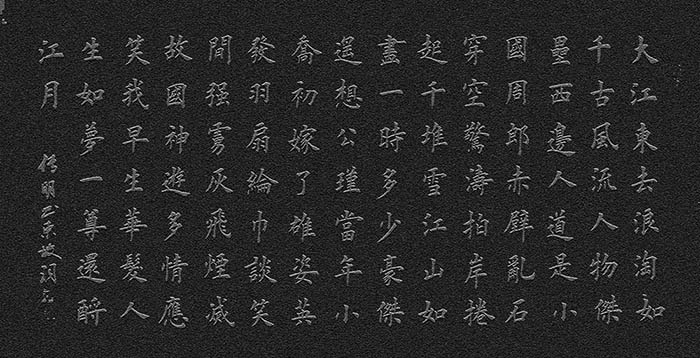 大江東去浪淘如
千古風流人物傑
壘西邊人道是小
國周郎赤壁亂石
穿空驚濤拍岸捲
起千堆雪江山如
畫一時多少豪傑
遥想公瑾當年小
喬初嫁了雄姿英
發羽扇綸巾談笑
間强虜灰飛煙滅
故國神遊多情應
笑我早生華髮人
生如夢一尊還酹
江月
明书东坡词